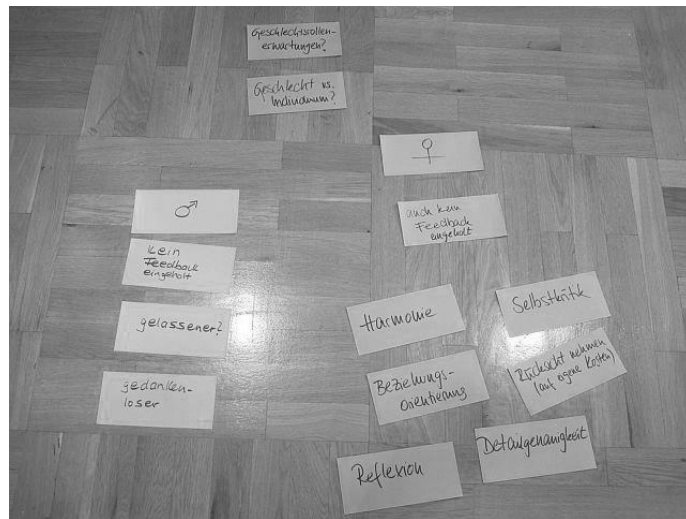 Geschlechtsrollen-
erwartungen?
Geschlecht vs.
Individuum?
♂
kein
Feedback
eingeholt
gelassener?
gedanken-
loser
♀
auch kein
Feedback
eingeholt
Harmonie
Selbstkritik
Beziehungs-
orientierung
Rücksicht nehmen
(auf eigene Kosten)
Reflexion
Detailgenauigkeit